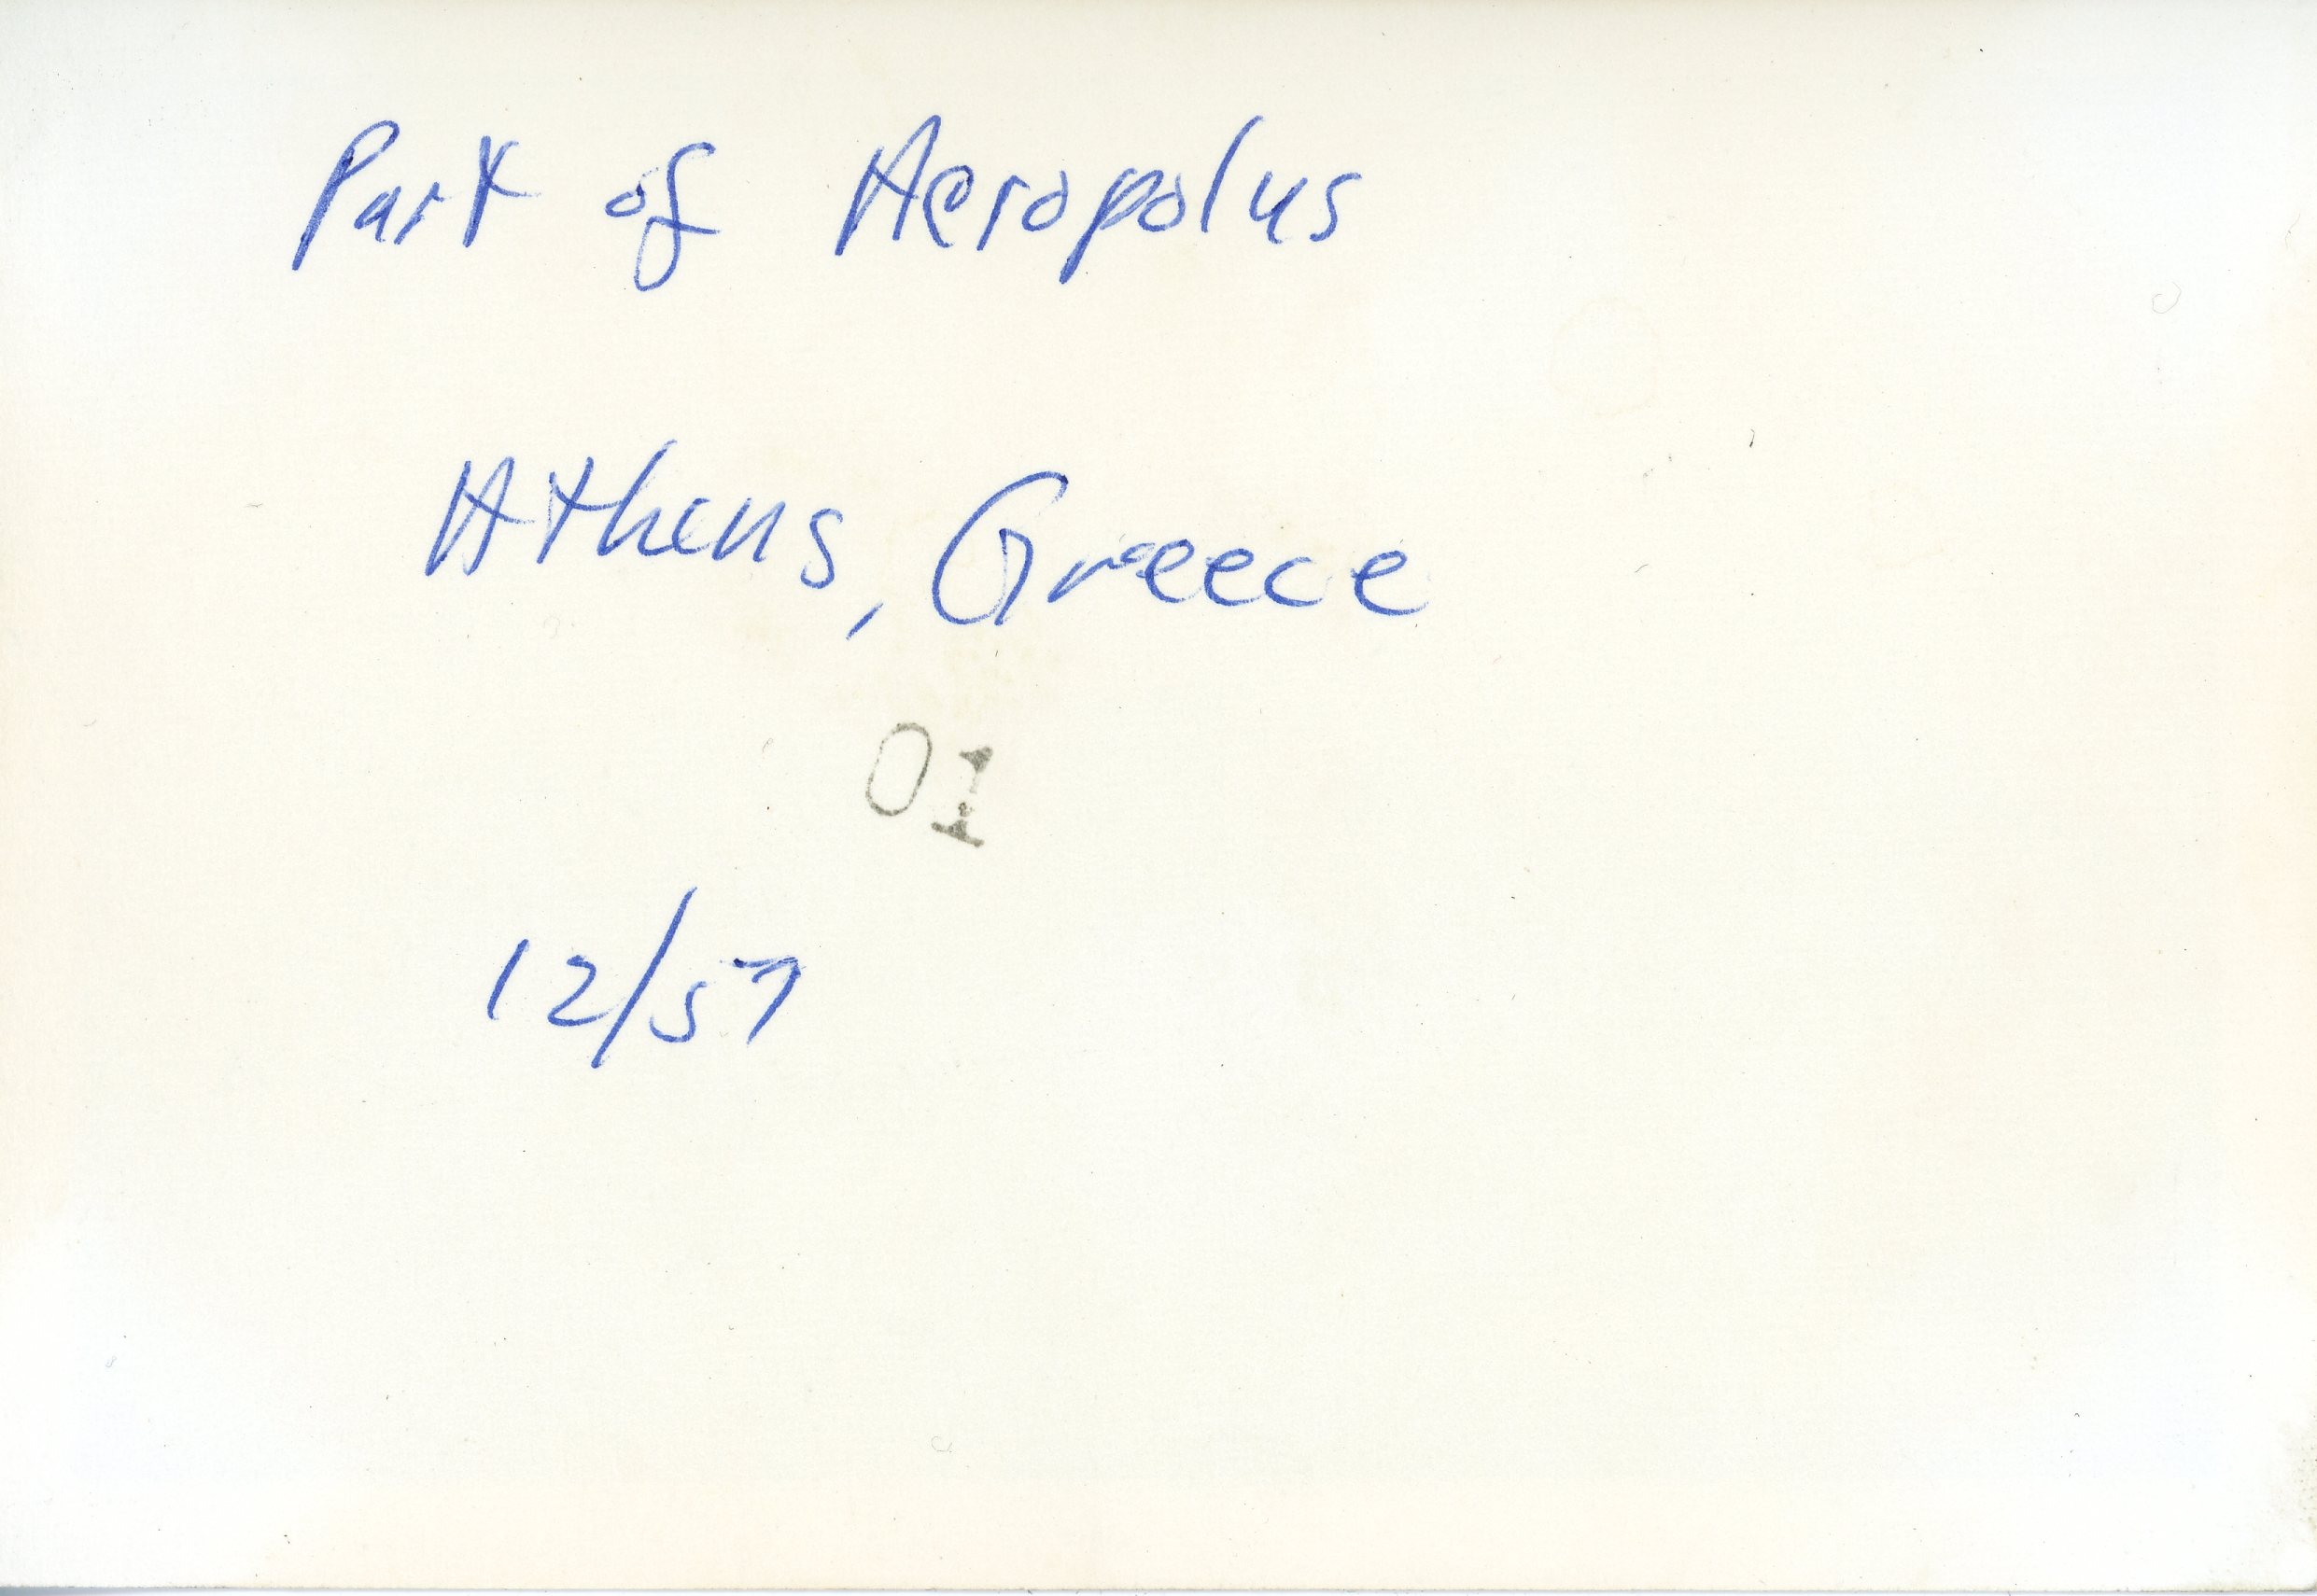 Part of Acropolus
Athens, Greece
01
12/57